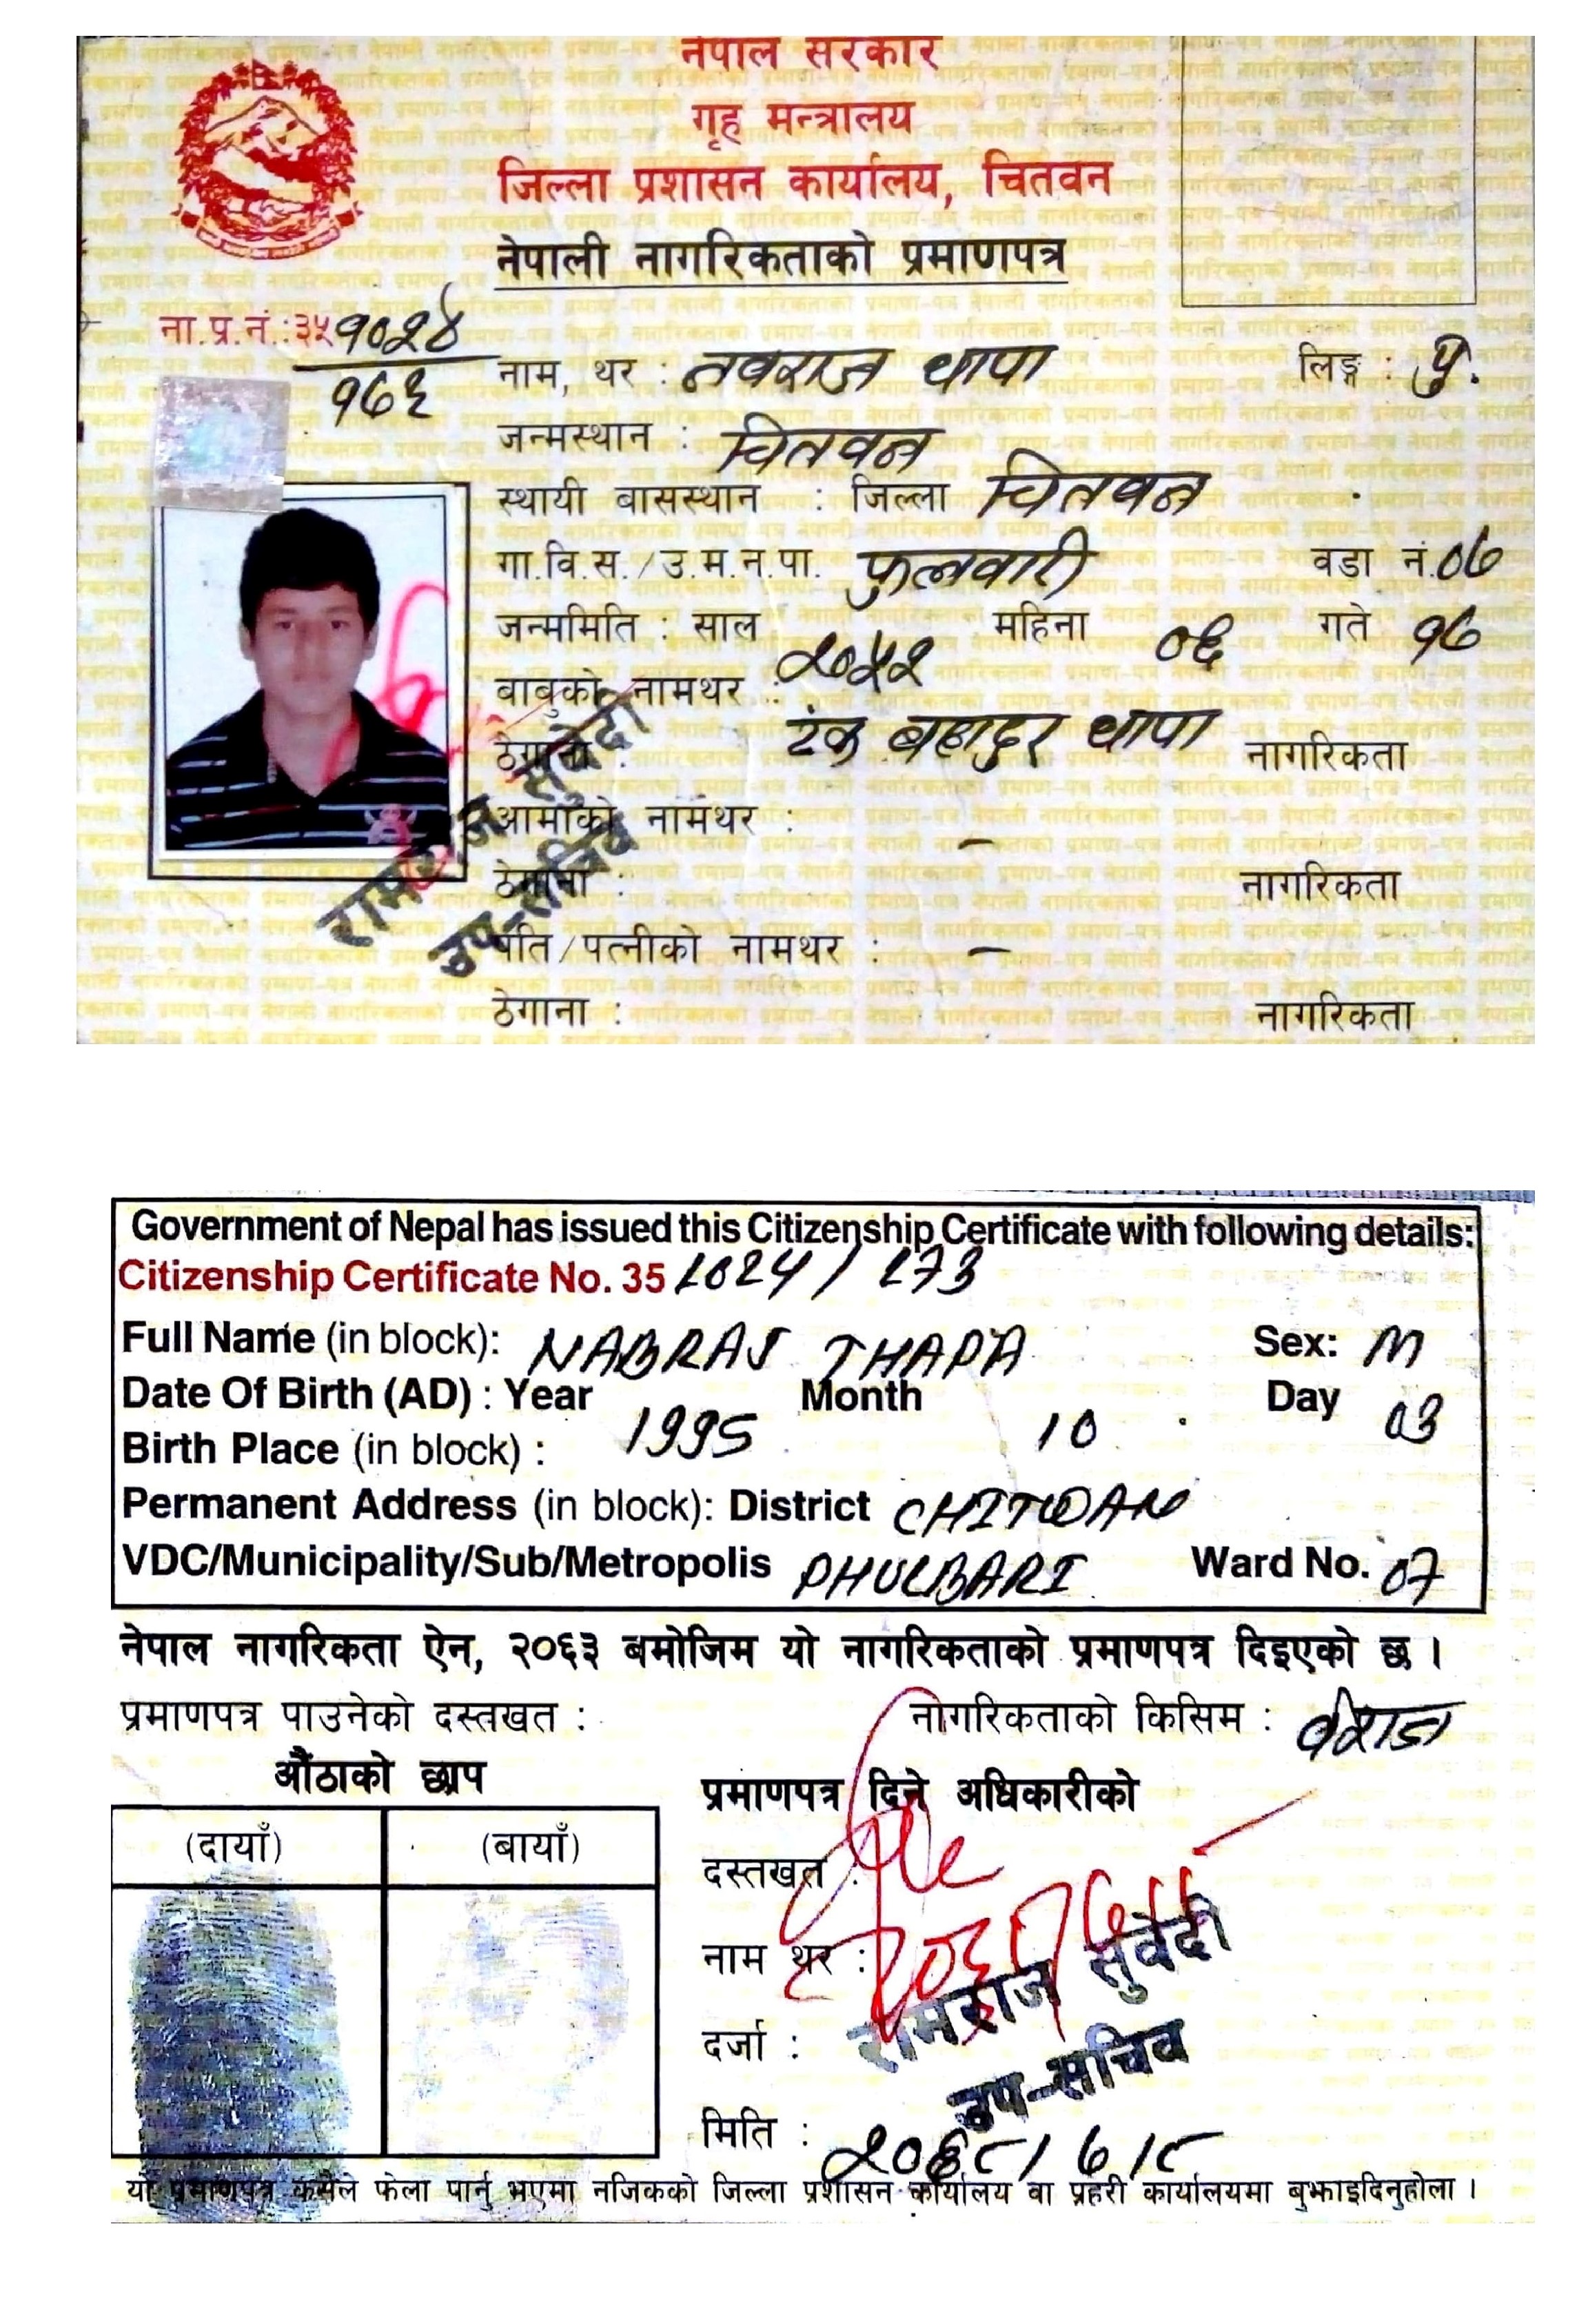 नेपाल सरकार
गृह मन्त्रालय
जिल्ला प्रशासन कार्यालय, चितवन
नेपाली नागरिकताको प्रमाणपत्र
ना.प्र.नं.:३५ १०२४
१७३
नाम, थर : नवराज थापा लिङ्ग : पु.
जन्मस्थान : चितवन
स्थायी बासस्थान : जिल्ला चितवन
गा.वि.स./उ.म.न.पा. फुलवारी वडा नं.०७
जन्ममिति : साल २०५२ महिना ०६ गते १७
बाबुको नामथर : टंक बहादुर थापा
ठेगाना : नागरिकता
आमाको नामथर : -
ठेगाना : नागरिकता
पति/पत्नीको नामथर : -
ठेगाना : नागरिकता
रामराज सुवेदी
उप-सचिव
Government of Nepal has issued this Citizenship Certificate with following details:
Citizenship Certificate No. 35 1024 / 173
Full Name (in block): NABRAJ THAPA Sex: M
Date Of Birth (AD) : Year 1995 Month 10 Day 03
Birth Place (in block) :
Permanent Address (in block): District CHITWAN
VDC/Municipality/Sub/Metropolis PHULBARI Ward No. 07
नेपाल नागरिकता ऐन, २०६३ बमोजिम यो नागरिकताको प्रमाणपत्र दिइएको छ ।
प्रमाणपत्र पाउनेको दस्तखत : नागरिकताको किसिम : वंशज
औंठाको छाप
(दायाँ) (बायाँ)
प्रमाणपत्र दिने अधिकारीको
दस्तखत :
नाम थर : रामराज सुवेदी
दर्जा : उप-सचिव
मिति : २०६८/७/८
यो प्रमाणपत्र कसैले फेला पार्नु भएमा नजिकको जिल्ला प्रशासन कार्यालय वा प्रहरी कार्यालयमा बुझाइदिनुहोला ।